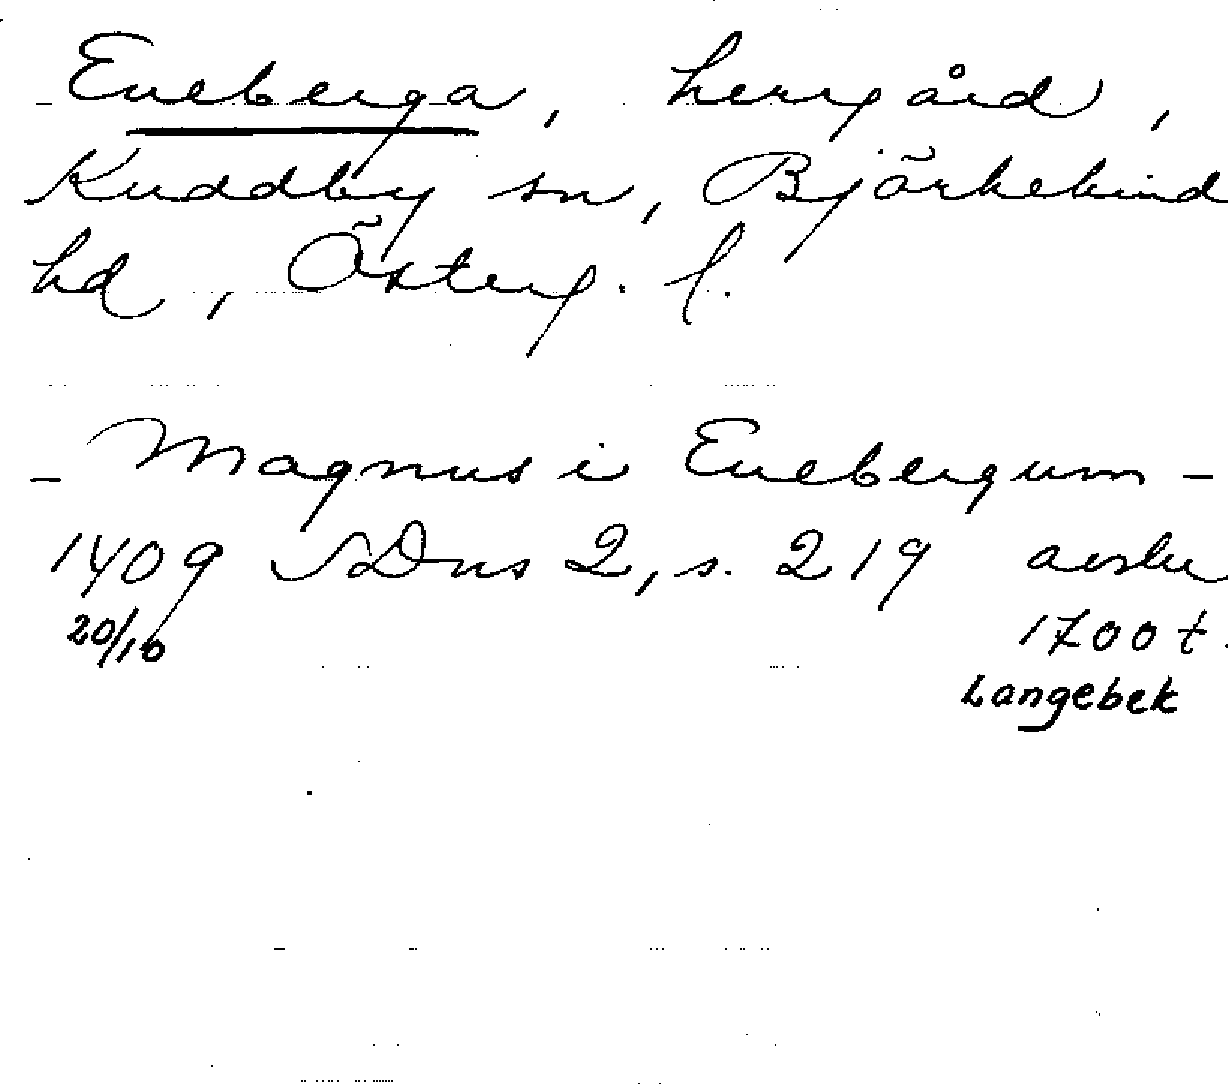 Eneberga, herrgård,
Kuddby sn, Björkekind
hd, Österg. l.
- Magnus i Enebergum -
1409 SDns 2, s. 219 avskr
20/10 1700 t.
Langebek